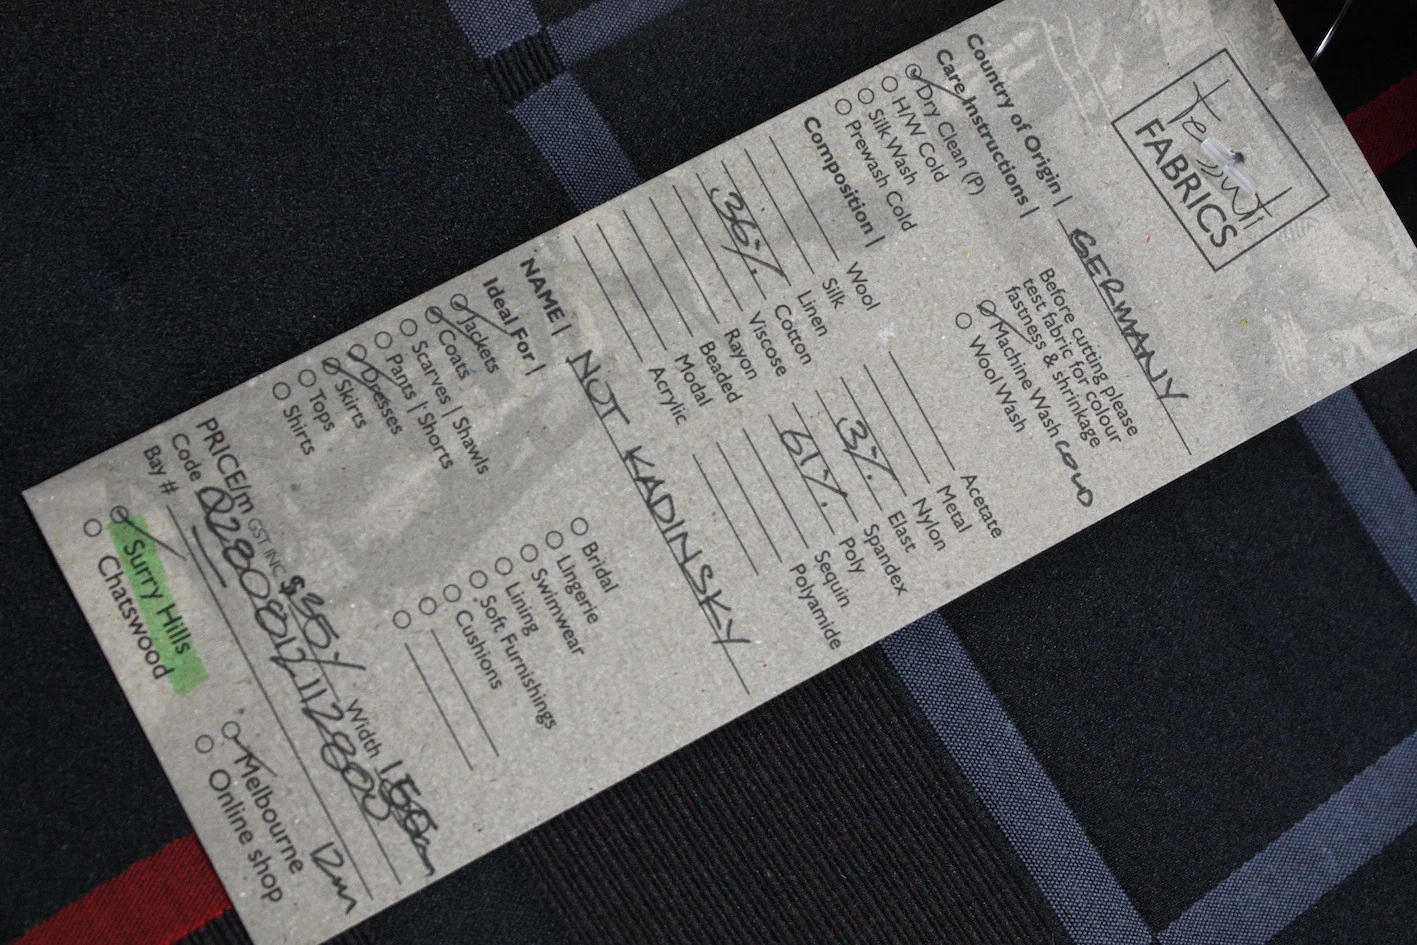 Tessuti
FABRICS
Country of Origin | GERMANY
Care Instructions |
Dry Clean (P)
H/W Cold
Silk Wash
Prewash Cold
Before cutting please
test fabric for colour
fastness & shrinkage
Machine Wash COLD
Wool Wash
Composition |
Wool
Silk
Linen
36% Cotton
Viscose
Rayon
Beaded
Modal
Acrylic
Acetate
Metal
Nylon
3% Elast
Spandex
61% Poly
Sequin
Polyamide
NAME | NOT KADINSKY
Ideal For |
Jackets
Coats
Scarves | Shawls
Pants | Shorts
Dresses
Skirts
Tops
Shirts
Bridal
Lingerie
Swimwear
Lining
Soft Furnishings
Cushions
PRICE/m GST INC $35/ Width
Code
Bay # 12m
Surry Hills
Chatswood
Melbourne
Online shop